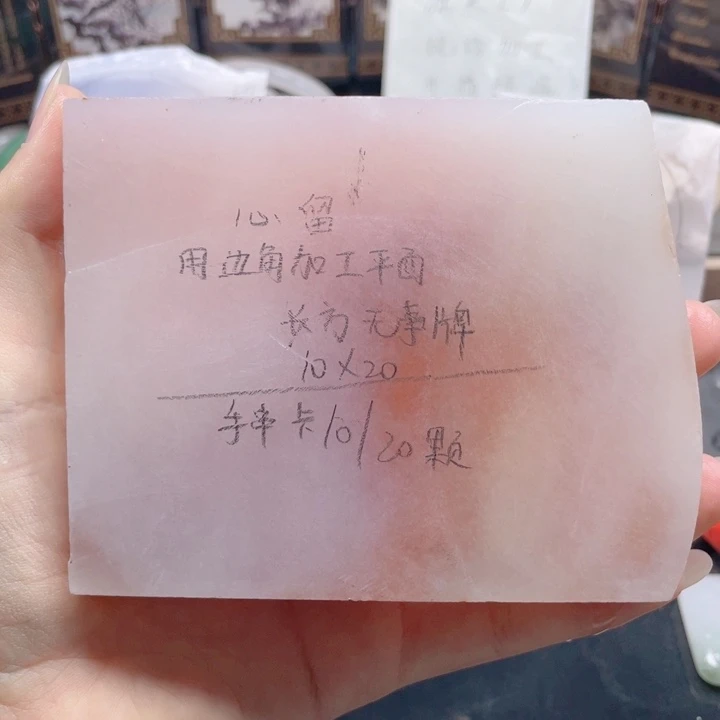 心留
用边角加工平面
长方无事牌
10X20
手串卡10/20颗